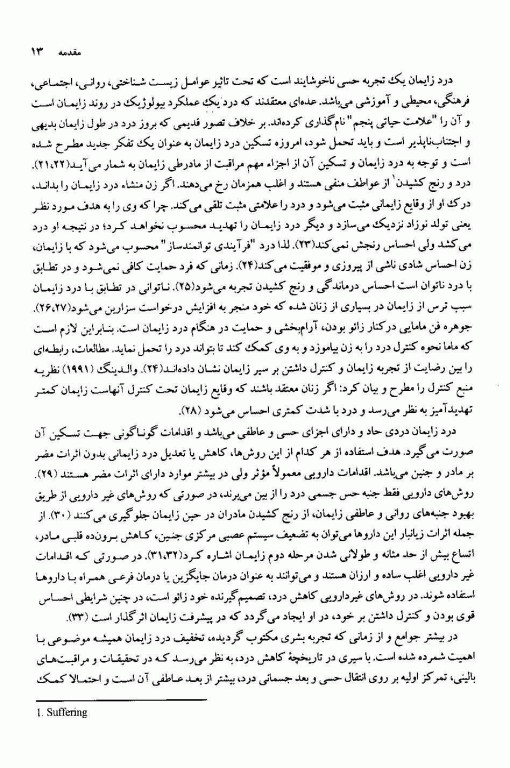 مقدمه ۱۳
درد زایمان یک تجربه حسی ناخوشایند است که تحت تاثیر عوامل زیست شناختی، روانی، اجتماعی،
فرهنگی، محیطی و آموزشی می‌باشد. عده‌ای معتقدند که درد یک عملکرد بیولوژیک در روند زایمان است
و آن را "علامت حیاتی پنجم" نام‌گذاری کرده‌اند. بر خلاف تصوّر قدیمی که بروز درد در طول زایمان بدیهی
و اجتناب‌ناپذیر است و باید تحمل شود، امروزه تسکین درد زایمان به عنوان یک تفکر جدید مطرح شده
است و توجه به درد زایمان و تسکین آن از اجزاء مهم مراقبت از مادرطی زایمان به شمار می‌آید(۲۱،۲۲).
درد و رنج کشیدن۱ از عواطف منفی هستند و اغلب همزمان رخ می‌دهند. اگر زن منشاء درد زایمان را بداند،
درک او از وقایع زایمانی مثبت می‌شود و درد را علامتی مثبت تلقی می‌کند. چرا که وی را به هدف مورد نظر
یعنی تولد نوزاد نزدیک می‌سازد و دیگر درد زایمان را تهدید محسوب نخواهد کرد؛ در نتیجه او درد
می‌کشد ولی احساس رنجش نمی‌کند(۲۳). لذا درد "فرآیندی توانمندساز" محسوب می‌شود که با زایمان،
زن احساس شادی ناشی از پیروزی و موفقیت می‌کند(۲۴). زمانی که فرد حمایت کافی نمی‌شود و در تطابق
با درد ناتوان است احساس درماندگی و رنج کشیدن تجربه می‌شود(۲۵). ناتوانی در تطابق با درد زایمان
سبب ترس از زایمان در بسیاری از زنان شده که خود منجر به افزایش درخواست سزارین می‌شود(۲۶،۲۷).
جوهره فن مامایی درکنار زائو بودن، آرام‌بخشی و حمایت در هنگام درد زایمان است. بنابراین لازم است
که ماما نحوه کنترل درد را به زن بیاموزد و به وی کمک کند تا بتواند درد را تحمل نماید. مطالعات، رابطه‌ای
را بین رضایت از تجربه زایمان و کنترل داشتن بر سیر زایمان نشان داده‌اند(۲۴). والدینگ (۱۹۹۱) نظریه
منبع کنترل را مطرح و بیان کرد: اگر زنان معتقد باشند که وقایع زایمان تحت کنترل آنهاست زایمان کمتر
تهدیدآمیز به نظر می‌رسد و درد با شدت کمتری احساس می‌شود (۲۸).
درد زایمان دردی حاد و دارای اجزای حسی و عاطفی می‌باشد و اقدامات گوناگونی جهت تسکین آن
صورت می‌گیرد. هدف استفاده از هر کدام از این روش‌ها، کاهش یا تعدیل درد زایمانی بدون اثرات مضر
بر مادر و جنین می‌باشد. اقدامات دارویی معمولاً مؤثر ولی در بیشتر موارد دارای اثرات مضر هستند (۲۹).
روش‌های دارویی فقط جنبه حس جسمی درد را از بین می‌برند، در صورتی که روش‌های غیر دارویی از طریق
بهبود جنبه‌های روانی و عاطفی زایمان، از رنج کشیدن مادران در حین زایمان جلوگیری می‌کنند (۳۰). از
جمله اثرات زیانبار این داروها می‌توان به تضعیف سیستم عصبی مرکزی جنین، کاهش برون‌ده قلبی مادر،
اتساع بیش از حد مثانه و طولانی شدن مرحله دوم زایمان اشاره کرد(۳۱،۳۲). در صورتی که اقدامات
غیر دارویی اغلب ساده و ارزان هستند و می‌توانند به عنوان درمان جایگزین یا درمان فرعی همراه با داروها
استفاده شوند. در روش‌های غیردارویی کاهش درد، تصمیم‌گیرنده خود زائو است، در چنین شرایطی احساس
قوی بودن و کنترل داشتن بر خود، در او ایجاد می‌گردد که در پیشرفت زایمان اثرگذار است (۳۳).
در بیشتر جوامع و از زمانی که تجربه بشری مکتوب گردیده، تخفیف درد زایمان همیشه موضوعی با
اهمیت شمرده شده است. با سیری در تاریخچۀ کاهش درد، به نظر می‌رسد که در تحقیقات و مراقبت‌های
بالینی، تمرکز اولیه بر روی انتقال حسی و بعد جسمانی درد، بیشتر از بعد عاطفی آن است و احتمالا کمک
1. Suffering